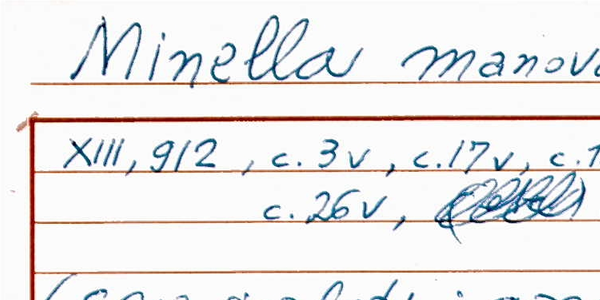 Minella manova
XIII, 912, c. 3v, c. 17v, c. 1
c. 26v,